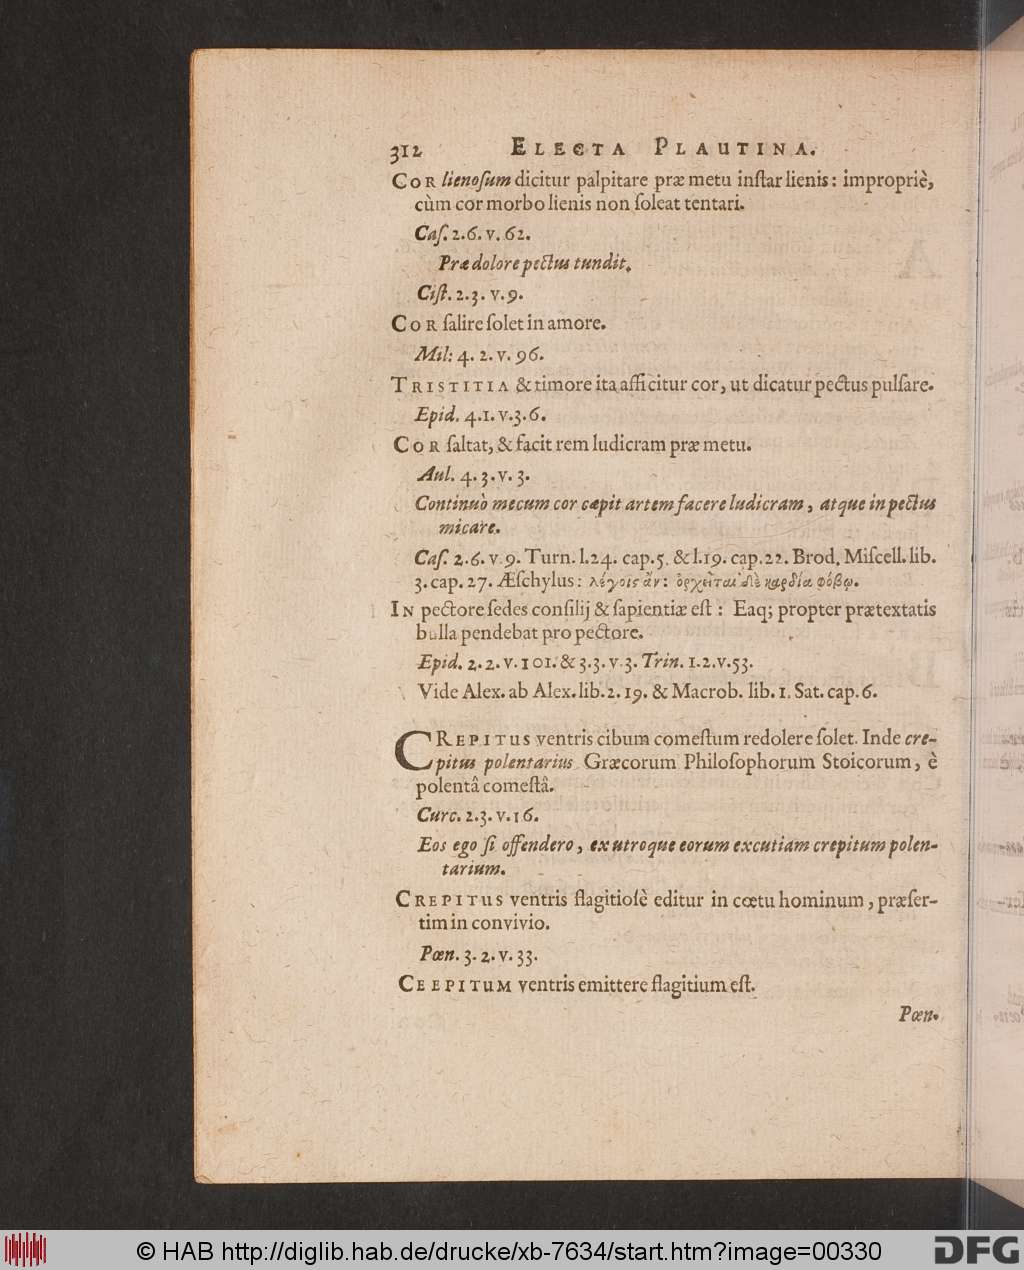 312 ELECTA PLAUTINA.
COR lienoſum dicitur palpitare præ metu inſtar lienis: impropriè,
cùm cor morbo lienis non ſoleat tentari.
Caſ. 2.6. v. 62.
Præ dolore pectus tundit.
Ciſt. 2.3. v.9.
COR ſalire ſolet in amore.
Mil: 4. 2. v. 96.
TRISTITIA & timore ita afficitur cor, ut dicatur pectus pulſare.
Epid. 4.1. v.3.6.
COR ſaltat, & facit rem ludicram præ metu.
Aul. 4. 3. v. 3.
Continuò mecum cor cœpit artem facere ludicram, atque in pectus
micare.
Caſ. 2.6. v.9. Turn. l.24. cap.5. & l.19. cap.22. Brod. Miſcell. lib.
3. cap. 27. Æſchylus: λέγοις ἄν: ὀρχεῖται δὲ καρδία φόβῳ.
IN pectore ſedes conſilij & ſapientiæ eſt: Eaq; propter prætextatis
bulla pendebat pro pectore.
Epid. 2. 2. v. 101. & 3.3. v.3. Trin. 1.2.v.53.
Vide Alex. ab Alex. lib. 2. 19. & Macrob. lib. 1. Sat. cap. 6.
CREPITUS ventris cibum comeſtum redolere ſolet. Inde cre-
pitus polentarius Græcorum Philoſophorum Stoicorum, è
polentâ comeſtâ.
Curc. 2.3. v.16.
Eos ego ſi offendero, ex utroque eorum excutiam crepitum polen-
tarium.
CREPITUS ventris flagitioſè editur in cœtu hominum, præſer-
tim in convivio.
Pœn. 3. 2. v. 33.
CEEPITUM ventris emittere flagitium eſt.
Pœn.
© HAB http://diglib.hab.de/drucke/xb-7634/start.htm?image=00330
DFG